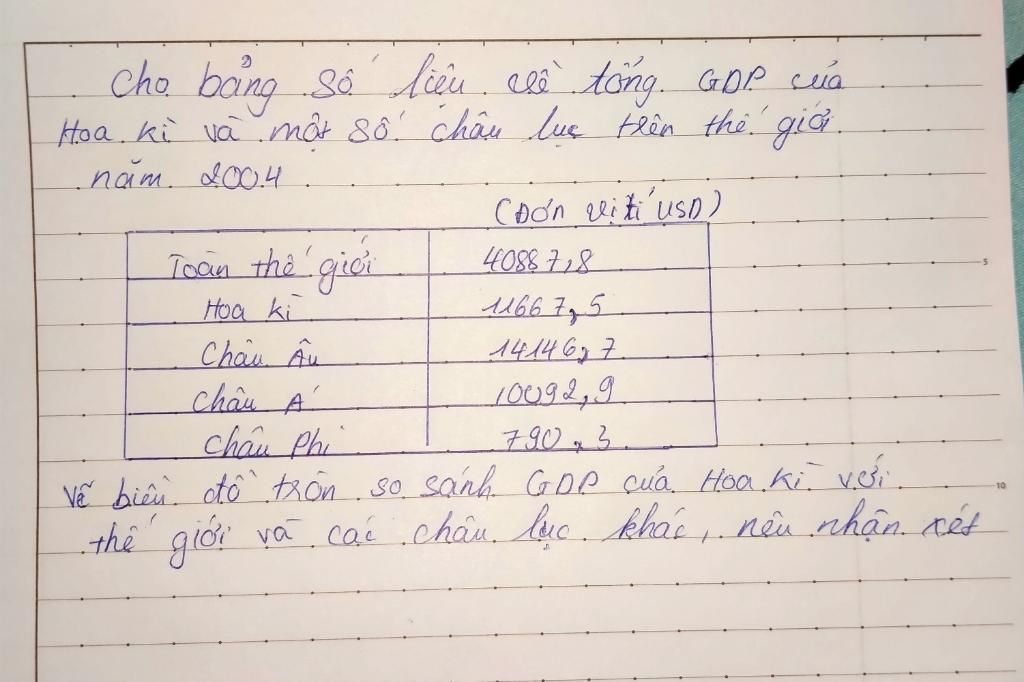 Cho bảng số liệu về tổng GDP của
Hoa kì và một số châu lục trên thế giới
năm 2004
(Đơn vị tỉ USD)
Toàn thế giới 40887,8
Hoa kì 11667,5
Châu Âu 14146,7
Châu Á 10092,9
Châu Phi 790,3
5
Vẽ biểu đồ tròn so sánh GDP của Hoa kì với
10
thế giới và các châu lục khác, nêu nhận xét